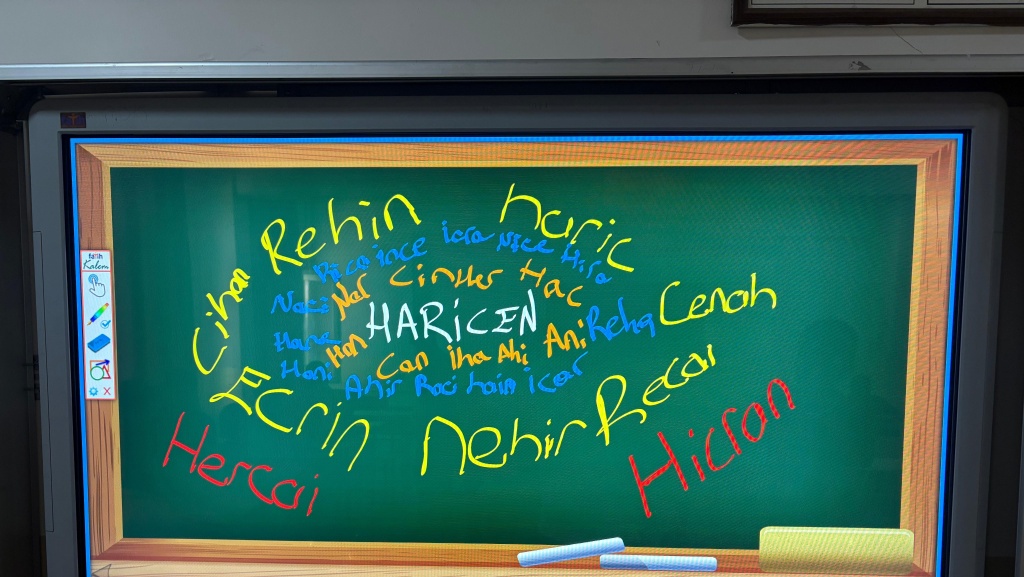 Rehin haric
Rica ince icra Nice Hira
Cihan Naci Nar Cinler Hac
fatih
Kalem
Hana HARİCEN Reha Cenah
Hani Han Can iha Ahi Ani
Ahir Raci hain icar
Ecrin Nehir Recai
Hercai Hicran